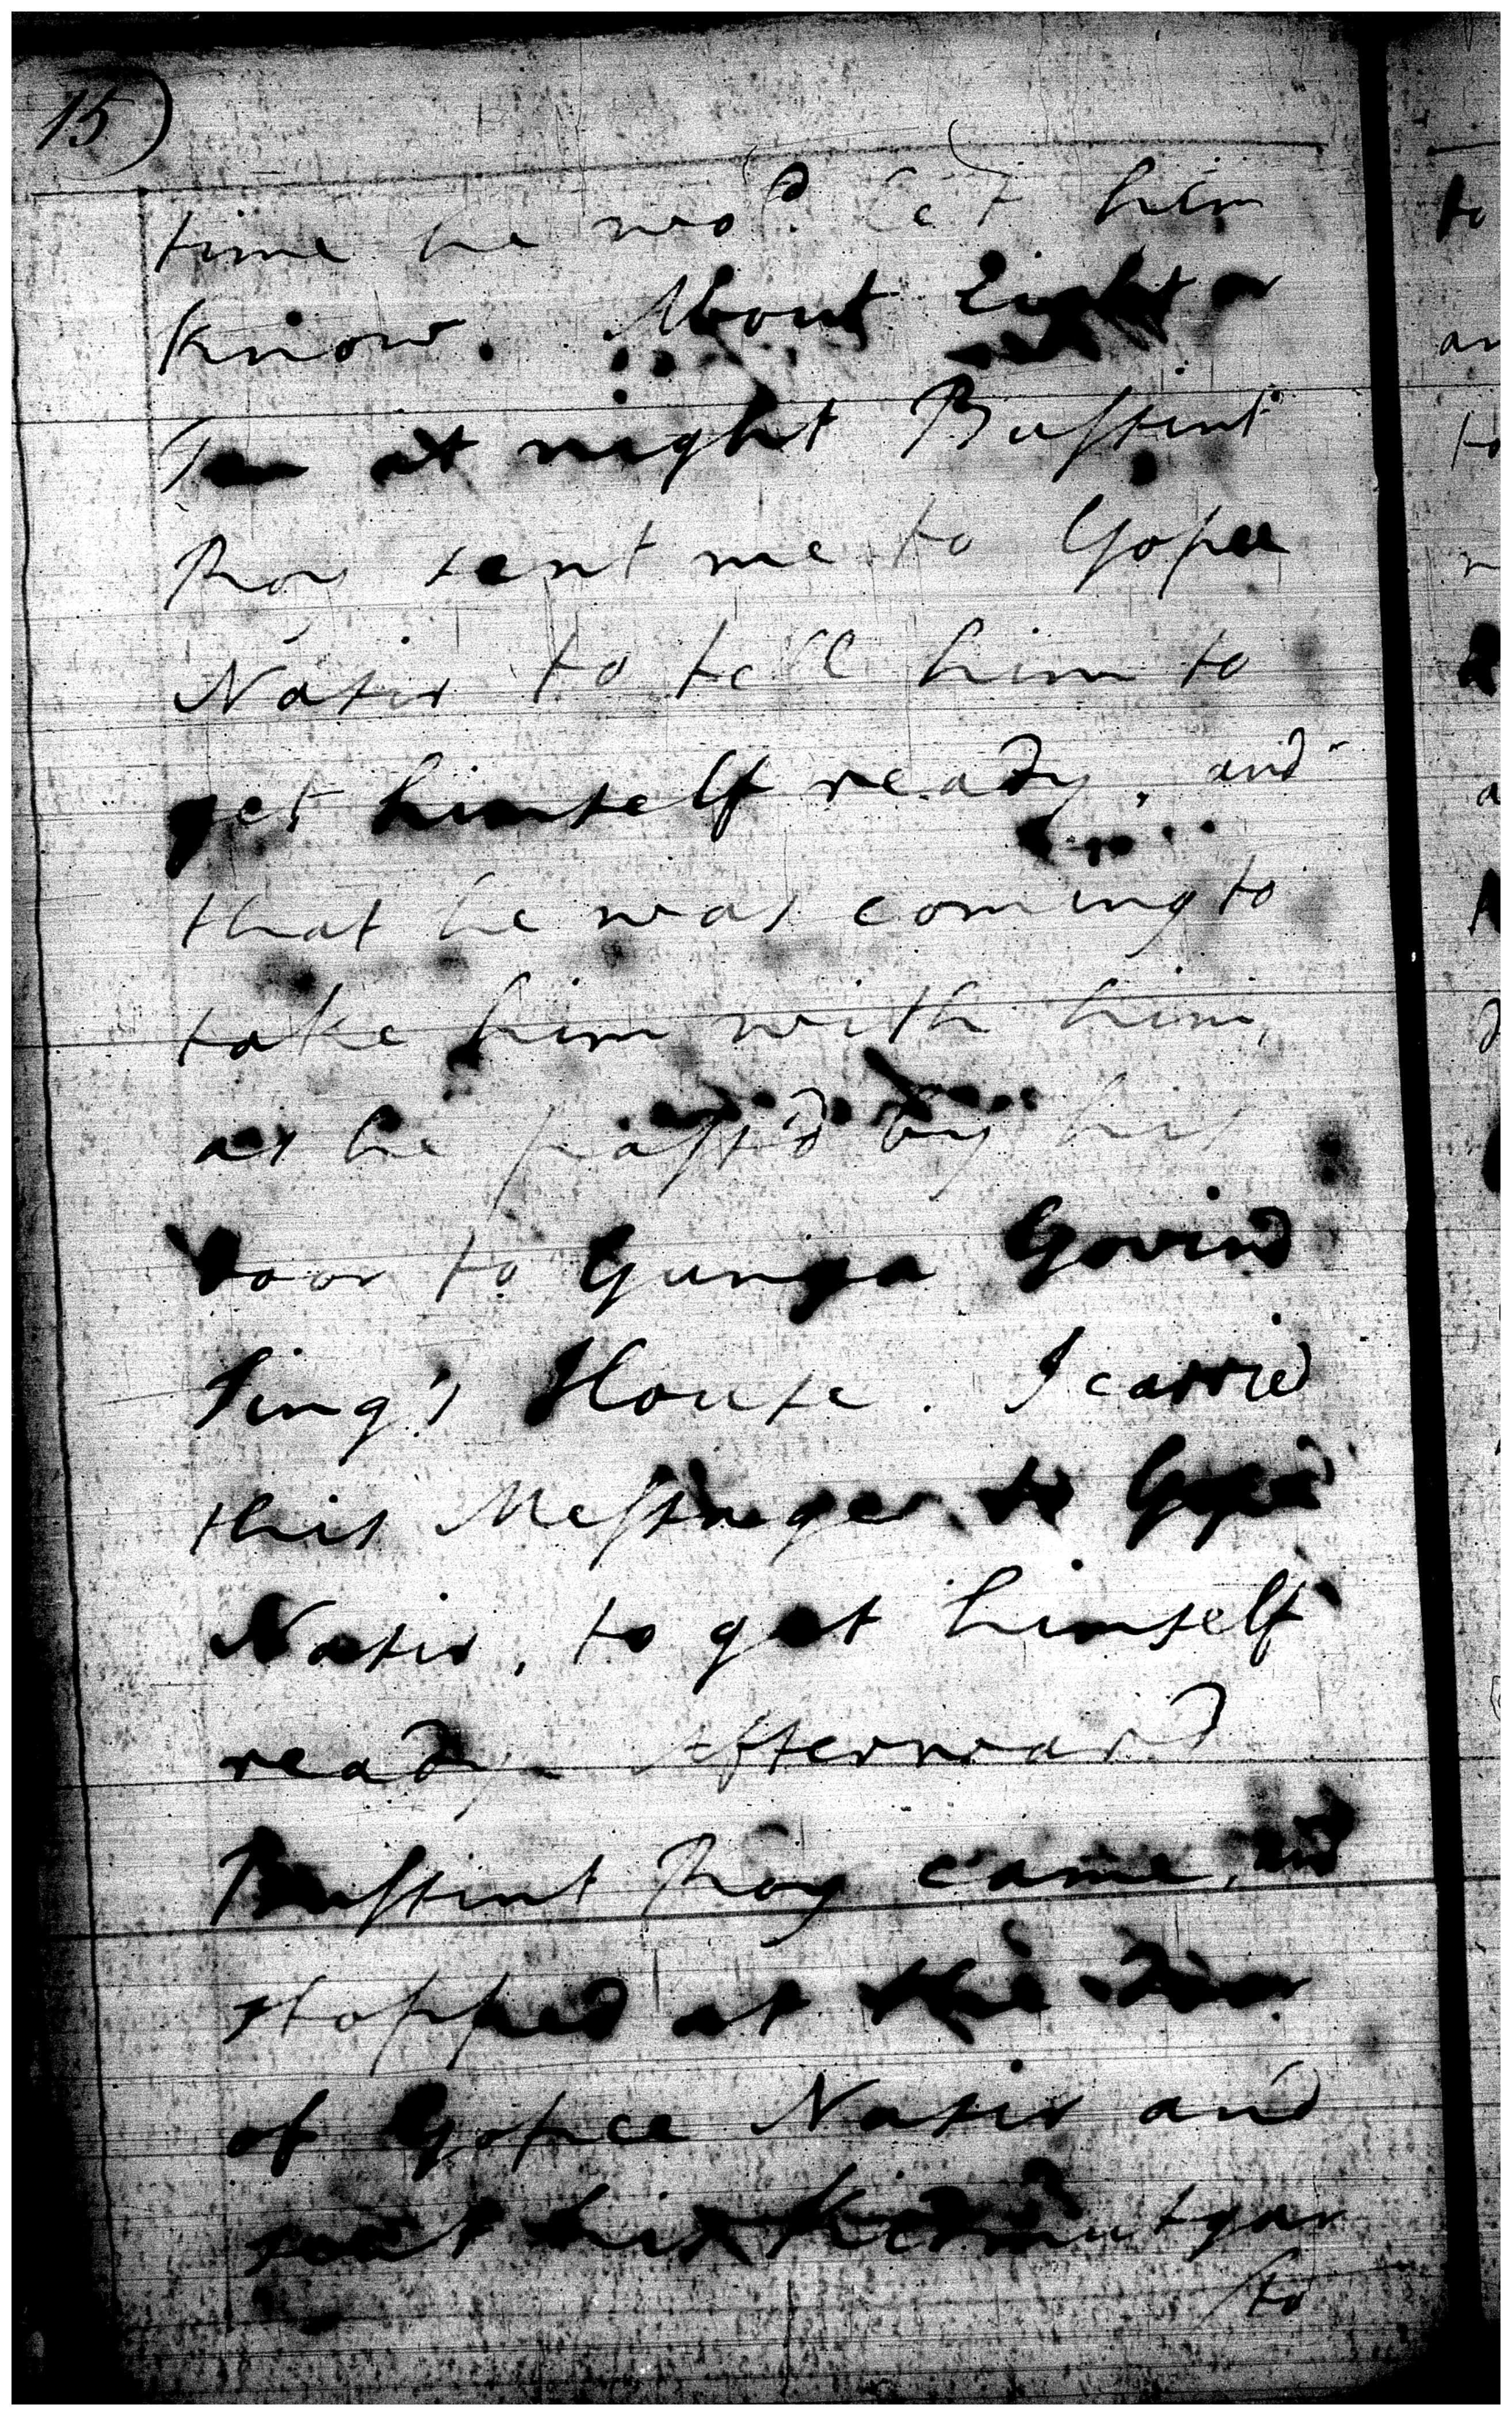 15)
time he wo.d let him
know. About Eight or
Ten at night Bussunt
Roy sent me to Gopee
Nasir to tell him to
get himself ready, and
that he was coming to
take him with him,
as he pass'd by his
Door to Gunga Govind
Sing's House. I carried
this Messenger to Gopee
Nasir, to get himself
ready. Afterward
Bussunt Roy came, and
stopped at the Door
of Gopee Nasir and
sent his Kidmutgar
to